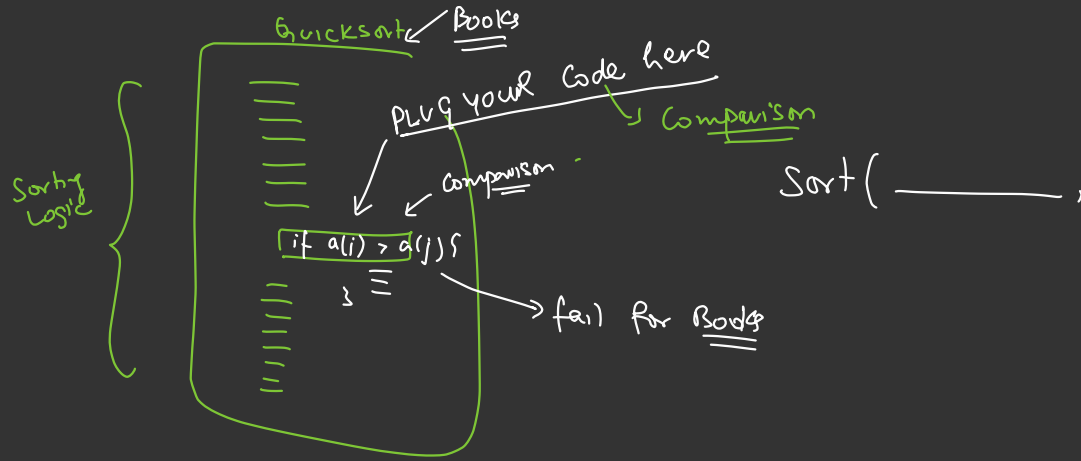 Quicksort
Books
PLUG your Code here
Comparison
Comparison
Sort( ________ ,
Sorting
Logic
if a(i) > a(j) {
}
fail for Books